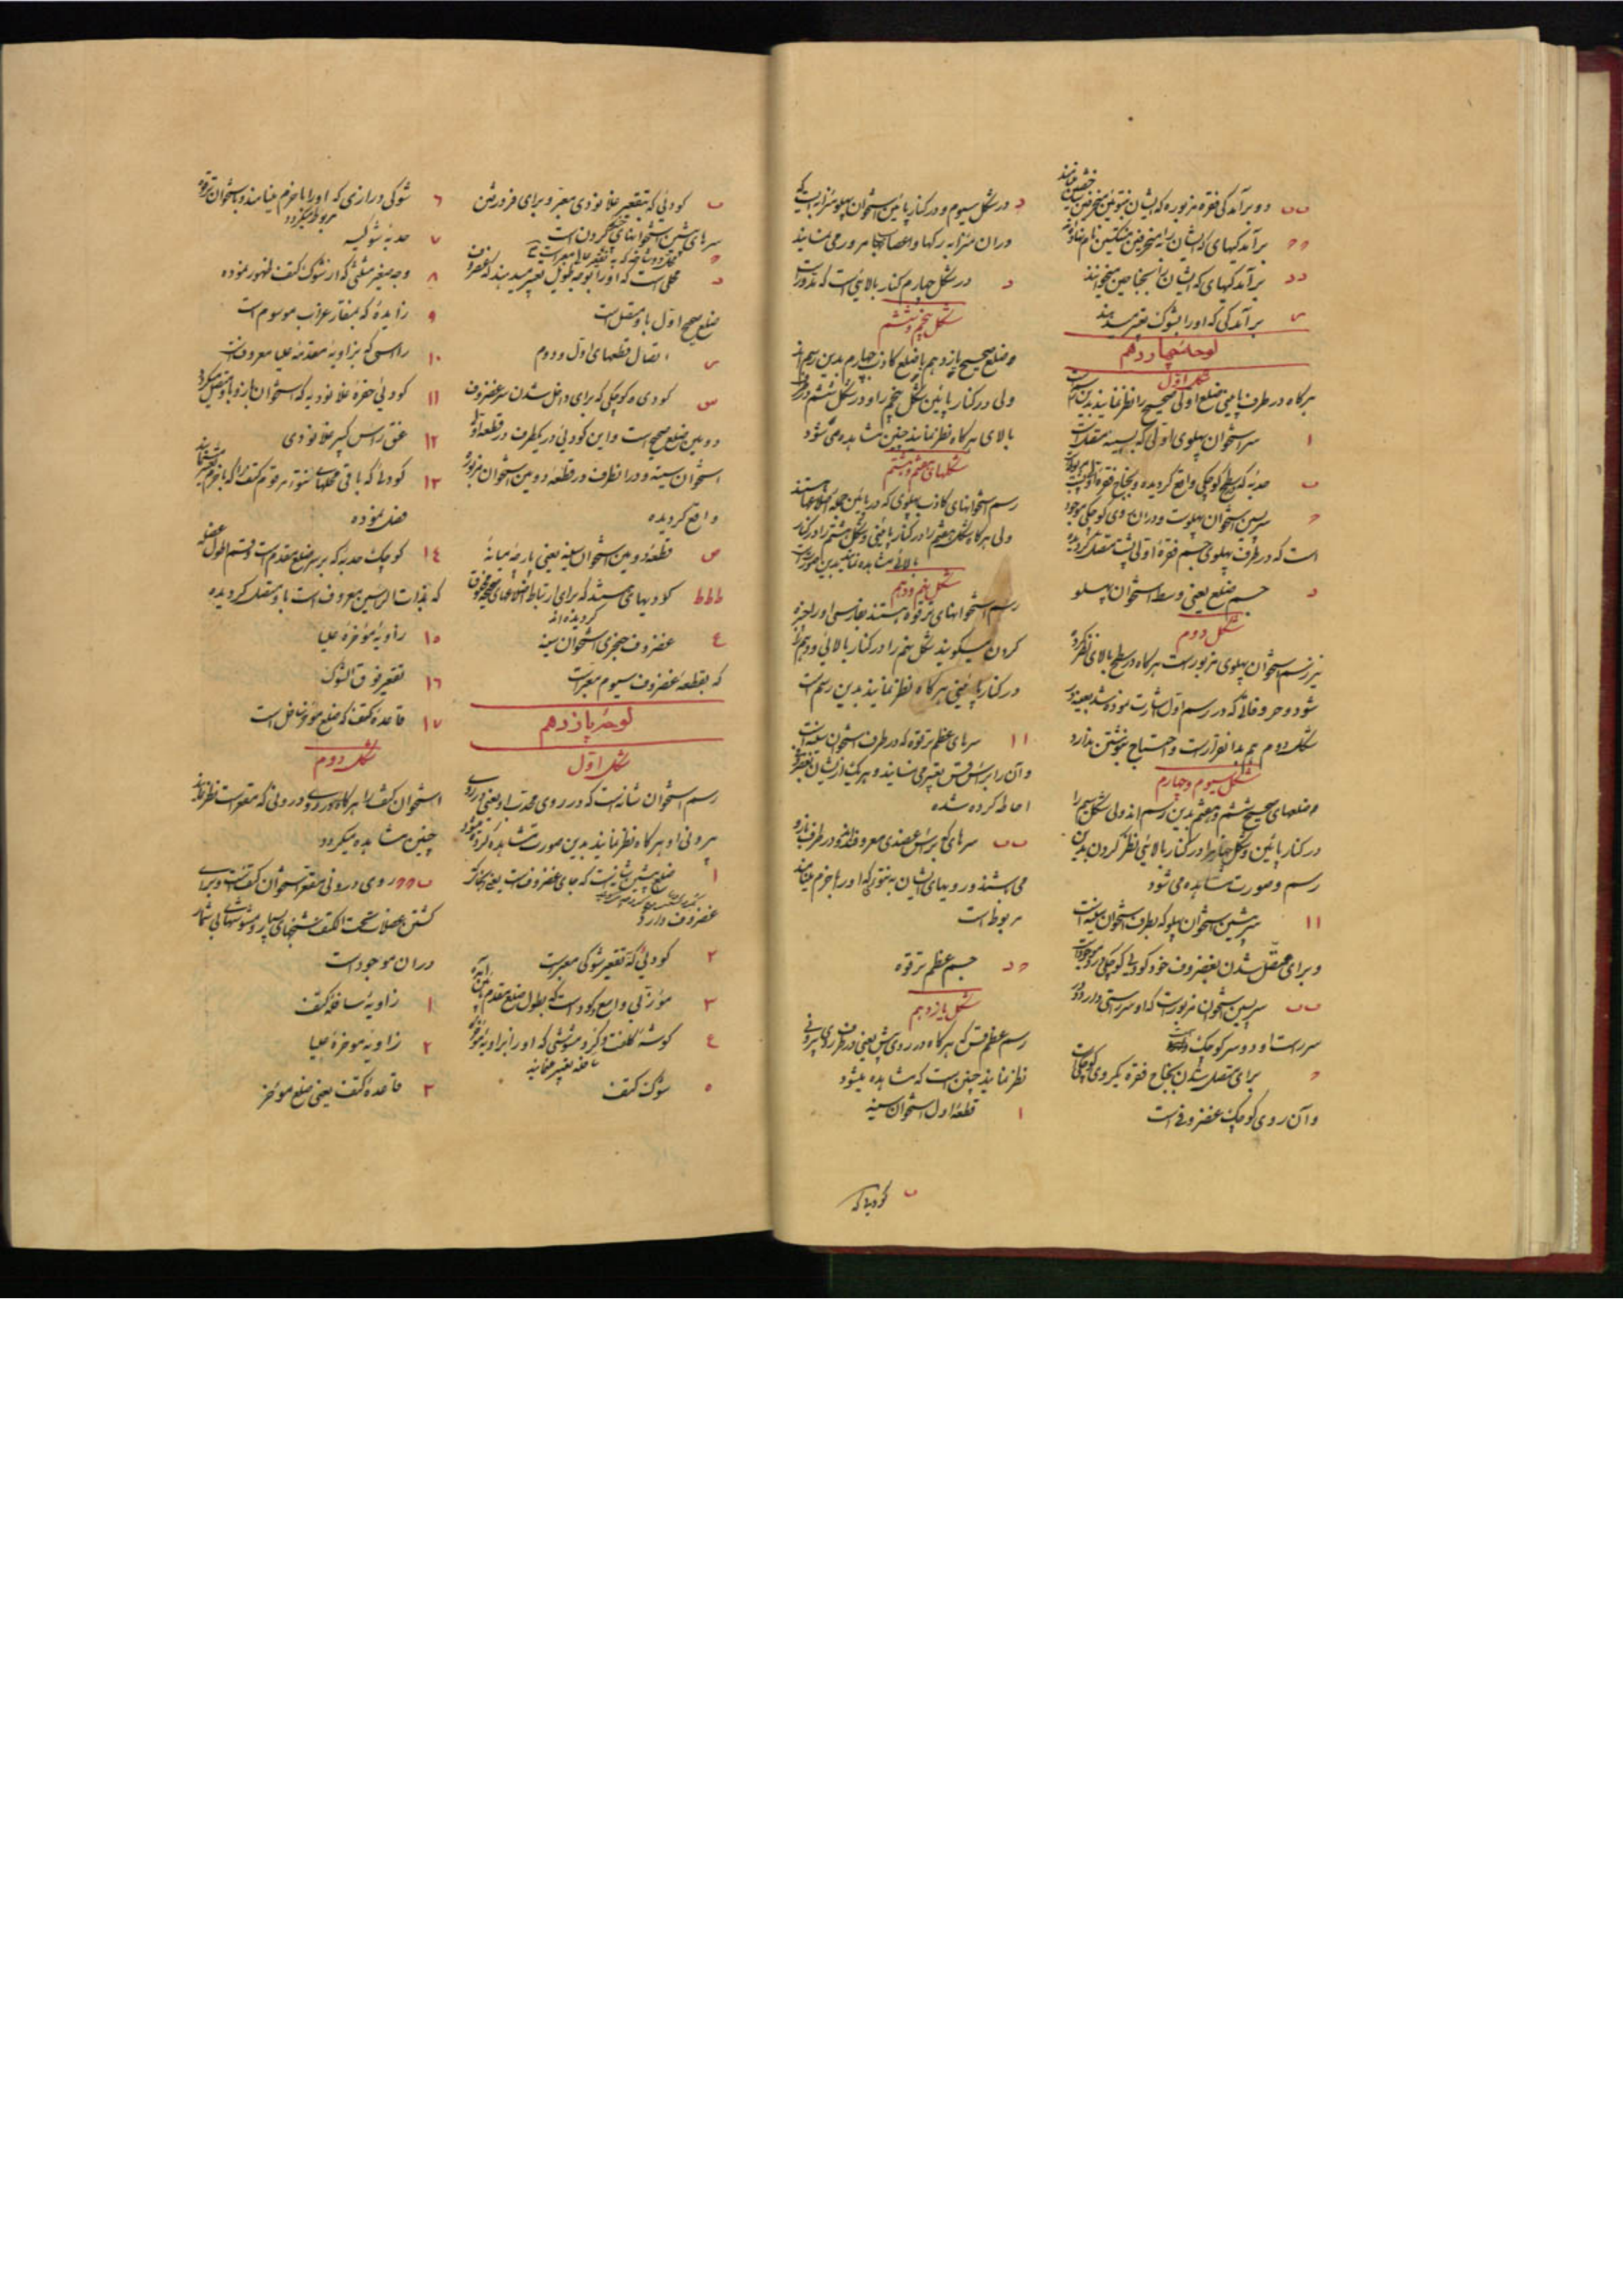 ب ب دو برآمدگی فقره مزبوره که ایشان بنتوئین منحرفین خفیفین مینامند
د د برآمدگیهای که ایشان را بجناحین میخوانند
س برآمدگی که او را بشوک تعبیر میدهند
لوحهٔ چهاردهم
شکل اول
هرگاه در طرف پائینی ضلع اولی صحیح را نظر نمایند بدین رسم است
۱ سر استخوان پهلوی اولی که بسینه متصل است
ب حدبه که سطح کوچکی واقع گردیده و بجناح فقره
سر پسین استخوان پهلوست و در آن روی کوچکی موجود
است که در طرف پهلوی جسم فقرهٔ اولی پشت متصل گردیده
د جسم ضلع یعنی وسط استخوان پهلو
شکل دوم
نیز رسم استخوان پهلوی مزبور است هرگاه در سطح بالای نظر کرده
شود و حروفاتی که در رسم اول اشارت نموده شد بعینه در
شکل دوم هم بدانقرار است و احتیاج بنوشتن ندارد
شکل سیوم و چهارم
ضلعهای صحیح ششم و هفتم بدین رسم اند ولی شکل سیم را
در کنار پائین و شکل چهارم را در کنار بالائینی نظر کردن بدین
رسم و صورت مشاهده می شود
۱۱ سر پیشین استخوان پهلو که بطرف استخوان سینه است
و برای متصل شدن بغضروف خود گودی کوچکی در او موجود است
ب ب سر پسین استخوان مزبور است که او سر راستی دارد و در
سر راست او دو سر کوچک است
برای متصل شدن بجناح فقره یک روی کوچکی است
و آن روی کوچک غضروفی است
د در شکل سیوم و در کنار پائین استخوان پهلو میزابه ایست که
در آن میزابه رکها و اعصابها مرور می نمایند
د در شکل چهارم کنار بالائینی است که مدور است
شکل پنجم و ششم
ضلع صحیح یازدهم یا ضلع کاذب چهارم بدین رسم اند
ولی در کنار پائین شکل پنجم را و در شکل ششم در کنار
بالای هرگاه نظر نمایند چنین مشاهده می شود
شکلهای هفتم و هشتم
رسم استخوانهای کاذب پهلوی که در پائین جمله اضلاعها هستند
ولی هرگاه شکل هفتم را در کنار پائینی و شکل هشتم را در کنار
بالائی مشاهده نمایند بدین صورت است
شکل نهم و دهم
رسم استخوانهای ترقوه هستند بفارسی او را چنبره
کردن میگویند شکل نهم را در کنار بالائی و دهم را
در کنار پائینی هرگاه نظر نمایند بدین رسم است
۱۱ سرهای عظم ترقوه که در طرف استخوان سینه است
و آن را برأس قس تعبیر می نمایند و هر یک از ایشان بغضروف
احاطه کرده شده
ب ب سرهای که برأس عضدی معروفند و در طرف بازو
می باشند و رویهای ایشان به نتوئی که او را باخرم مینامند
مربوط است
د جسم عظم ترقوه
شکل یازدهم
رسم عظم قس که هرگاه در روی پیش یعنی در طرف روی بیرونی
نظر نمایند چنین است که مشاهده میشود
۱ قطعهٔ اول استخوان سینه
ب گودئی که
ب گودئی که بتقعیر غلانودی معبر و برای فرو رفتن
سرهای پیشین استخوانهای چنبر گردن است
د محلی است که او را بوجه طویل تعبیر میدهند که غضروف
ضلع صحیح اول باو متصل است
س اتصال قطعهای اول و دوم
س گودی کوچکی که برای داخل شدن سر غضروف
دومین ضلع صحیح است و این گودئی در یکطرف در قطعه اول
استخوان سینه و در انطرف در قطعهٔ دومین استخوان مزبور
واقع گردیده
ص قطعهٔ دومین استخوان سینه یعنی پارچهٔ میانهٔ
ط ط ط گودیهای میباشند که برای ارتباط اضلاعهای صحیحه مخلوق
گردیده اند
ع غضروف خنجری استخوان سینه
که بقطعهٔ غضروف سیوم معبر است
لوحهٔ پازدهم
شکل اول
رسم استخوان شانه است که در روی محدب او یعنی در روی
بیرونی او هرگاه نظر نمایند بدین صورت مشاهده کرده میشود
۱ ضلع پیشین شانه است که جای غضروف است یعنی بجای که
غضروف دارد
۲ گودئی که بتقعیر شوکی معبر است
۴ گوشهٔ کلفت و گرد و مشوشی که او را بزاویهٔ مؤخره
سافله تعبیر مینمایند
۵ شوک کتف
٦ شوکی درازی که او را باخرم مینامند و باستخوان ترقوه
مربوط میگردد
۷ حدبهٔ شوکیه
۸ وجه صغیر مثلثی که از شوک کتف ظهور نموده
۹ زایدهٔ که بمنقار غراب موسوم است
۱۰ راسی که بزاویهٔ مقدمهٔ علیا معروفست
۱۱ گودئی حفرهٔ غلانودیه که استخوان بازو باو متصل میگردد
۱۲ عنق رأس کبیر غلانودی
۱۳ گودئی که باقی محلهای نتوء مرقوم کتف را که باخرم میباشد
فصل نموده
۱٤ کوچک حدبه که بر سر ضلع مقدم است و قسم اطول عضله
که بذات الرأسین معروف است باو متصل گردیده
۱۵ زاویهٔ مؤخرهٔ علیا
۱٦ تقعیر فوق الشوک
۱۷ قاعدهٔ کتف که ضلع مؤخر سافل است
شکل دوم
استخوان کتف را هرگاه در روی درونی که مقعر است نظر نمایند
چنین مشاهده میگردد
روی درونی مقعر استخوان کتف است و برای
گذشتن عضلات تحت الکتف شخهای بسیار و مشوشهای بی شمار
در آن موجود است
۱ زاویهٔ سافلهٔ کتف
۲ زاویهٔ مؤخرهٔ علیا
۳ قاعدهٔ کتف یعنی ضلع مؤخر